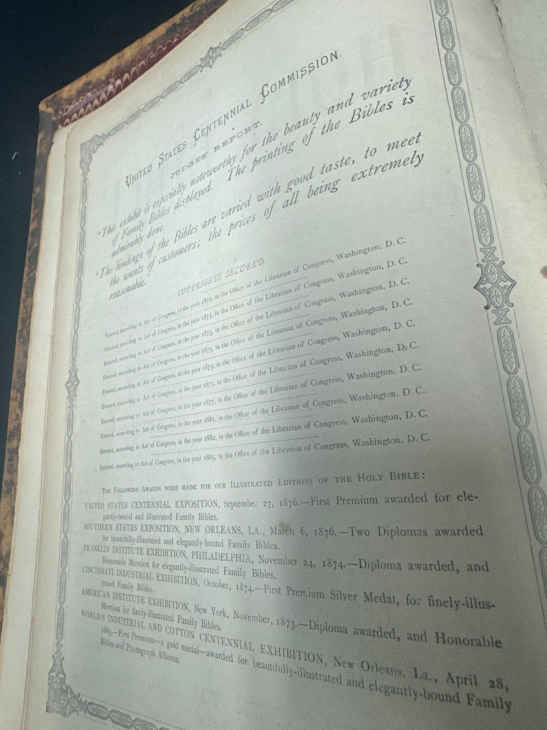 UNITED STATES CENTENNIAL COMMISSION.
JUDGES' REPORT.
"This exhibit is especially noteworthy for the beauty and variety
of Family Bibles displayed. The printing of the Bibles is
admirably done.
"The bindings of the Bibles are varied with good taste, to meet
the wants of customers; the prices of all being extremely
reasonable.
COPYRIGHT RECORD.
Entered, according to Act of Congress, in the year in the Office of the Librarian of Congress, Washington, D. C.
Entered, according to Act of Congress, in the year 1873, in the Office of the Librarian of Congress, Washington, D. C.
Entered, according to Act of Congress, in the year 1875, in the Office of the Librarian of Congress, Washington, D. C.
Entered, according to Act of Congress, in the year in the Office of the Librarian of Congress, Washington, D. C.
Entered, according to Act of Congress, in the year in the Office of the Librarian of Congress, Washington, D. C.
Entered, according to Act of Congress, in the year 1877, in the Office of the Librarian of Congress, Washington, D. C.
Entered, according to Act of Congress, in the year in the Office of the Librarian of Congress, Washington, D. C.
Entered, according to Act of Congress, in the year 1882, in the Office of the Librarian of Congress, Washington, D. C.
Entered, according to Act of Congress, in the year 1885, in the Office of the Librarian of Congress, Washington, D. C.
THE FOLLOWING AWARDS WERE MADE FOR OUR ILLUSTRATED EDITIONS OF THE HOLY BIBLE:
UNITED STATES CENTENNIAL EXPOSITION, September 27, 1876.—First Premium awarded for ele-
gantly-bound and illustrated Family Bibles.
SOUTHERN STATES EXPOSITION, NEW ORLEANS, LA., March 6, 1876.—Two Diplomas awarded
for beautifully-illustrated and elegantly-bound Family Bibles.
FRANKLIN INSTITUTE EXHIBITION, PHILADELPHIA, November 24, 1874.—Diploma awarded, and
Honorable Mention for elegantly-illustrated Family Bibles.
CINCINNATI INDUSTRIAL EXHIBITION, October, 1874.—First Premium Silver Medal, for finely-illus-
trated Family Bibles.
AMERICAN INSTITUTE EXHIBITION, New York, November, 1873.—Diploma awarded, and Honorable
Mention for finely-illustrated Family Bibles.
WORLD'S INDUSTRIAL AND COTTON CENTENNIAL EXHIBITION, New Orleans, La., April 28,
1885.—First Premium—a gold medal—awarded for beautifully-illustrated and elegantly-bound Family
Bibles and Photograph Albums.